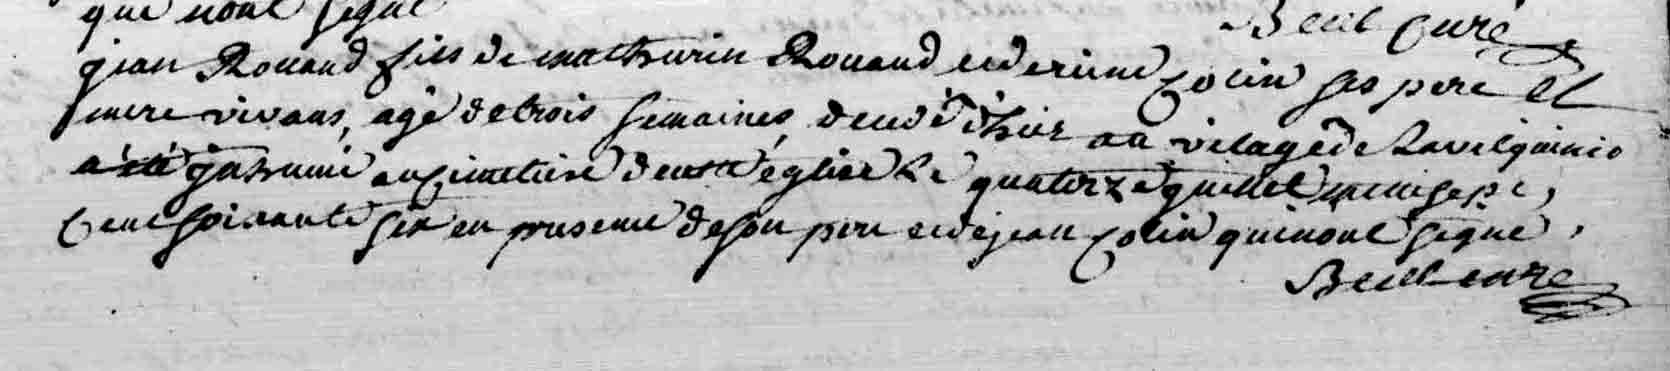 qui n'ont signé
Beill curé
jean Rouaud fils de mathurin Rouaud et de Colin ses pere et
mere vivans, agé de trois semaines, decedé d'hier au vilage de
a été inhumé au cimetiere de cette église le quatorze juillet mil sept
cent soixante six en presence de son pere et de jean Colin qui n'ont signé,
Beill curé